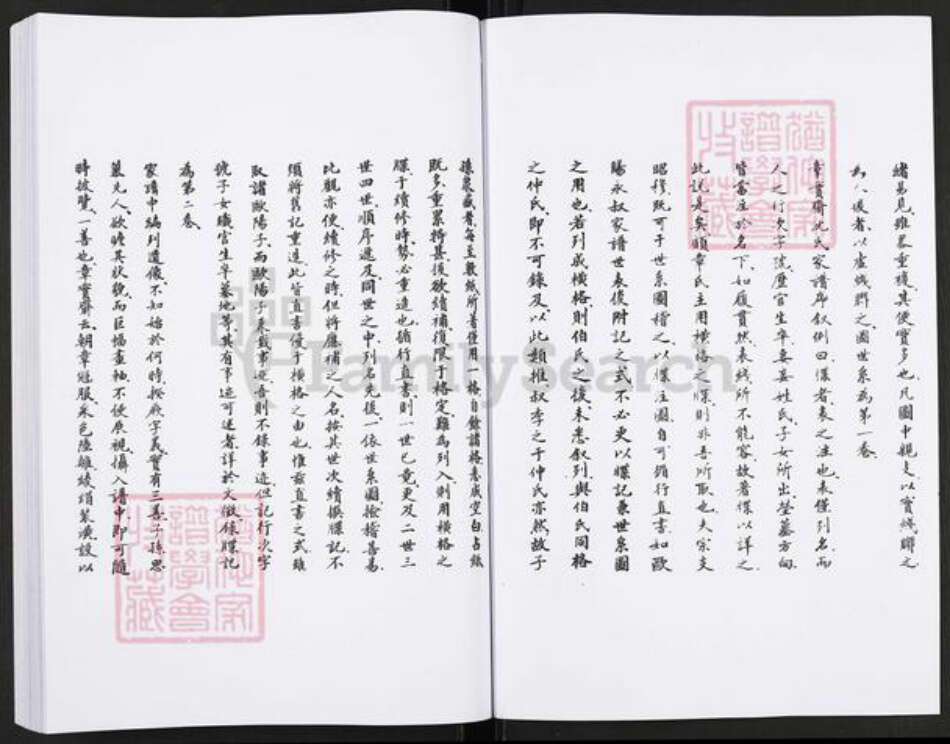 緒易見雖若重複其便實多也凡圖中親支以實綫聯之
為人後者以虛綫聯之圖世系為第一卷
章實齋沈氏家譜序叙例曰牒者表之注也表僅列名而
人之行次字號歷官生卒妻妾姓氏子女所出塋墓方向
皆當注於名下如履貫然表綫所不能容故著牒以詳之
此説是矣顧章氏主用橫格之牒則非吾所取也夫宗支
昭穆既可于世系圖稽之以牒注圖自可循行直書如歐
陽永叔家譜世表後附記之式不必更以牒記兼世系圖
之用也若列成橫格則伯氏之後未悉叙列與伯氏同格
之仲氏即不可錄及以此類推叔季之于仲氏亦然故子
孫衆盛者每至數紙所著僅用一格自餘諸格悉成空白占紙
既多重累將甚後欲續補復限于格定難為列入則用橫格之
牒于續修時勢必重造也循行直書則一世已竟更及二世三
世四世順序遞及同世之中列名先後一依世系圖檢稽甚易
比觀亦便續修之時但將應補之人名按其世次續撰牒記不
須將舊記重造此皆直書優于橫格之由也惟茲直書之式雖
取諸歐陽子而歐陽子表載事迹吾則不錄事迹但記行次字
號子女職官生卒墓地等其有事迹可述者詳於文徵錄牒記
為第二卷
家譜中編列遺像不知始於何時揆厥字義實有三善子孫思
慕先人欲瞻其狀貌而巨幅畫軸不便展視攝入譜中即可隨
時披覽一善也章實齋云朝章冠服采色陸離綾絹裝潢設以
猶他家
譜學會
收藏
FamilySearch
猶他家
譜學會
收藏